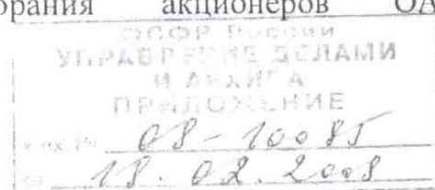 брания акционеров ОА
ФСФР России
УПРАВЛЕНИЕ ДЕЛАМИ
И АРХИВА
ПРИЛОЖЕНИЕ
к вх. № 08-10085
от 18.02.2008